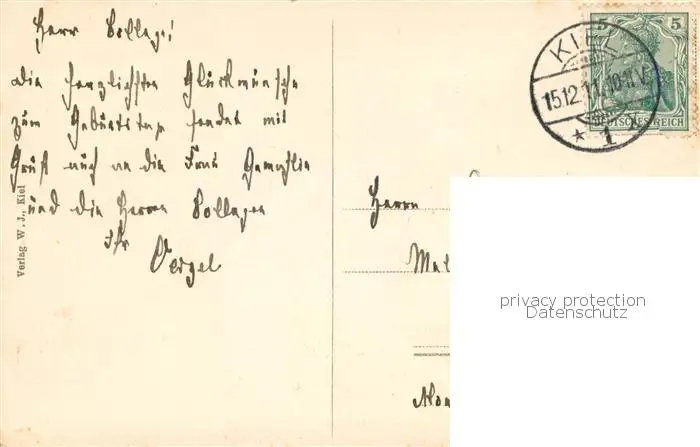 Herr Kollege!
Die herzlichsten Glückwünsche
zum Geburtstage sendet mit
Gruß auch an die Frau Gemahlin
und die Herren Kollegen
Ihr
Vergel
Verlag W. J., Kiel
5 5
KIEL
15.12.11.10-11V.
* 1
DEUTSCHES REICH
Herrn
privacy protection
Datenschutz